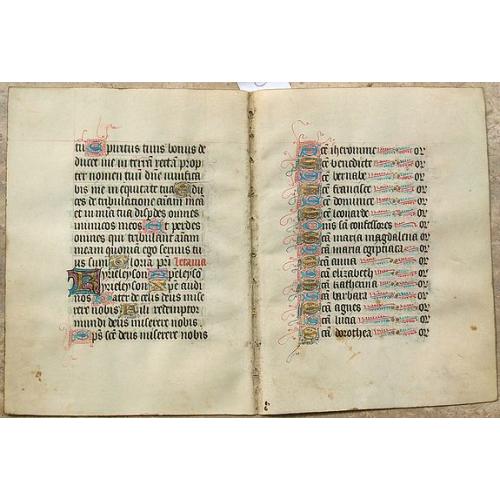 tu Spiritus tuus bonus de
ducet me in terrā rectā prop
ter nomen tuū dn̄e uiuifica
bis me in equitate tua Edu
ces de tribulatione aīam meā
et in mīa tua disp̄des omnes
inimicos meos Et perdes
omnes qui tribulant aīam
meam quoniā ego seruus tu
us sum Gloria pri Letania
Kyrieleyson Xpeleyson
kyrieleyson Xpe audi
nos Pater de celis deus mise
rere nobis Fili redemptor
mundi deus miserere nobis.
Sps sc̄e deus miserere nobis
Sc̄e iheronime or
Sc̄e benedicte or
Sc̄e bernabe or
Sc̄e francisce or
Sc̄e dominice or
Sc̄e leonarde or
Omēs sc̄i confessores or
Sc̄a maria magdalena or
Sc̄a maria egiptiaca or
Sc̄a anna or
Sc̄a elizabeth or
Sc̄a katherina or
Sc̄a barbara or
Sc̄a agnes or
Sc̄a lucia or
Sc̄a dorothea or